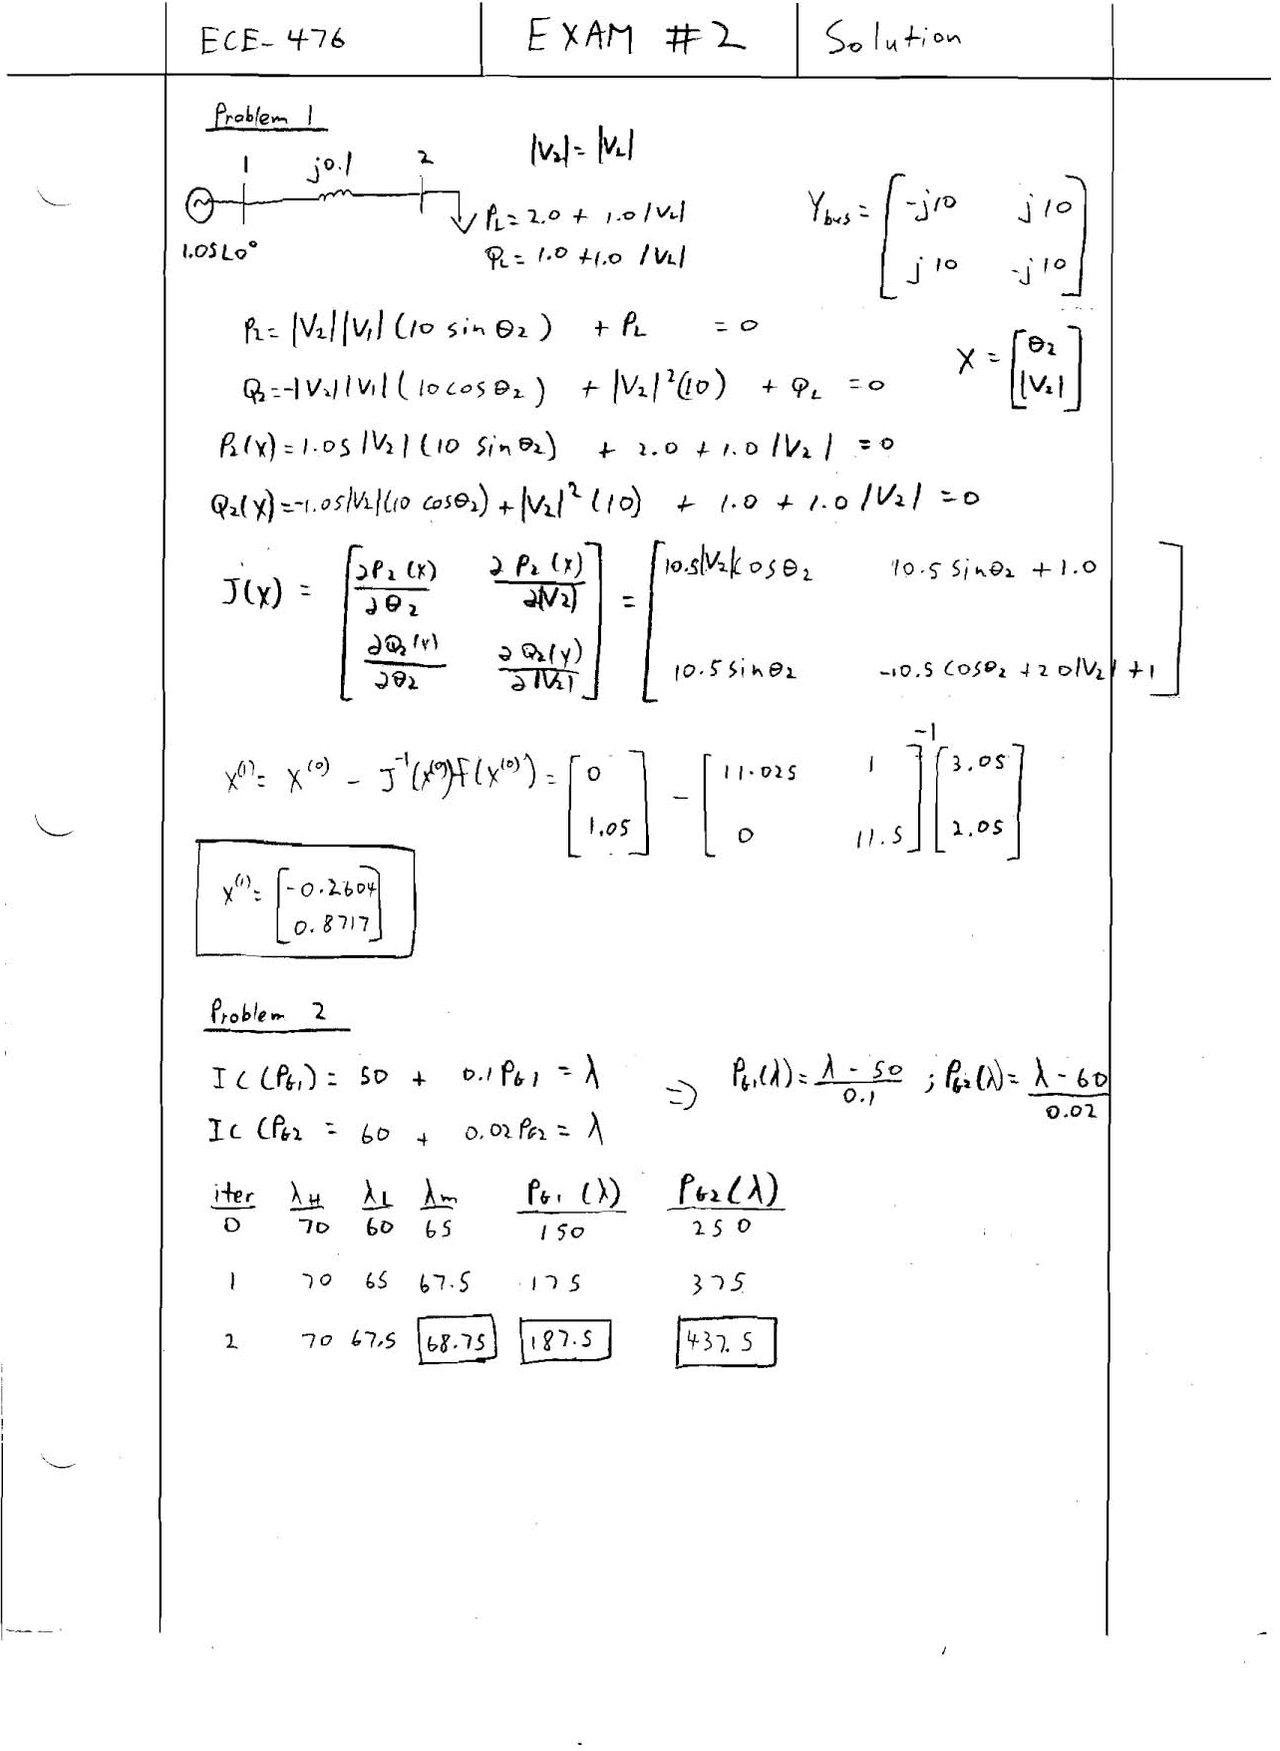 ECE-476 EXAM #2 Solution
Problem 1
|V2| = |VL|
1 j0.1 2
1.05∠0°
PL = 2.0 + 1.0|VL|
QL = 1.0 + 1.0 |VL|
Ybus = [-j10 j10
j10 -j10]
P2 = |V2||V1|(10 sin θ2) + PL = 0
Q2 = -|V2||V1|(10 cos θ2) + |V2|²(10) + QL = 0
X = [θ2
|V2|]
P2(x) = 1.05|V2|(10 sin θ2) + 2.0 + 1.0|V2| = 0
Q2(x) = -1.05|V2|(10 cosθ2) + |V2|²(10) + 1.0 + 1.0|V2| = 0
J(x) = [∂P2(x)/∂θ2 ∂P2(x)/∂|V2|
∂Q2(x)/∂θ2 ∂Q2(x)/∂|V2|] = [10.5|V2|cosθ2 10.5 sinθ2 + 1.0
10.5 sinθ2 -10.5 cosθ2 + 20|V2| + 1]
X(1) = X(0) - J⁻¹(x(0))f(x(0)) = [0
1.05] - [11.025 1
0 11.5]⁻¹ [3.05
2.05]
X(1) = [-0.2604
0.8717]
Problem 2
IC(PG1) = 50 + 0.1PG1 = λ ⇒ PG1(λ) = λ - 50/0.1 ; PG2(λ) = λ - 60/0.02
IC(PG2 = 60 + 0.02PG2 = λ
iter λH λL λm PG1(λ) PG2(λ)
0 70 60 65 150 250
1 70 65 67.5 175 375
2 70 67.5 68.75 187.5 437.5